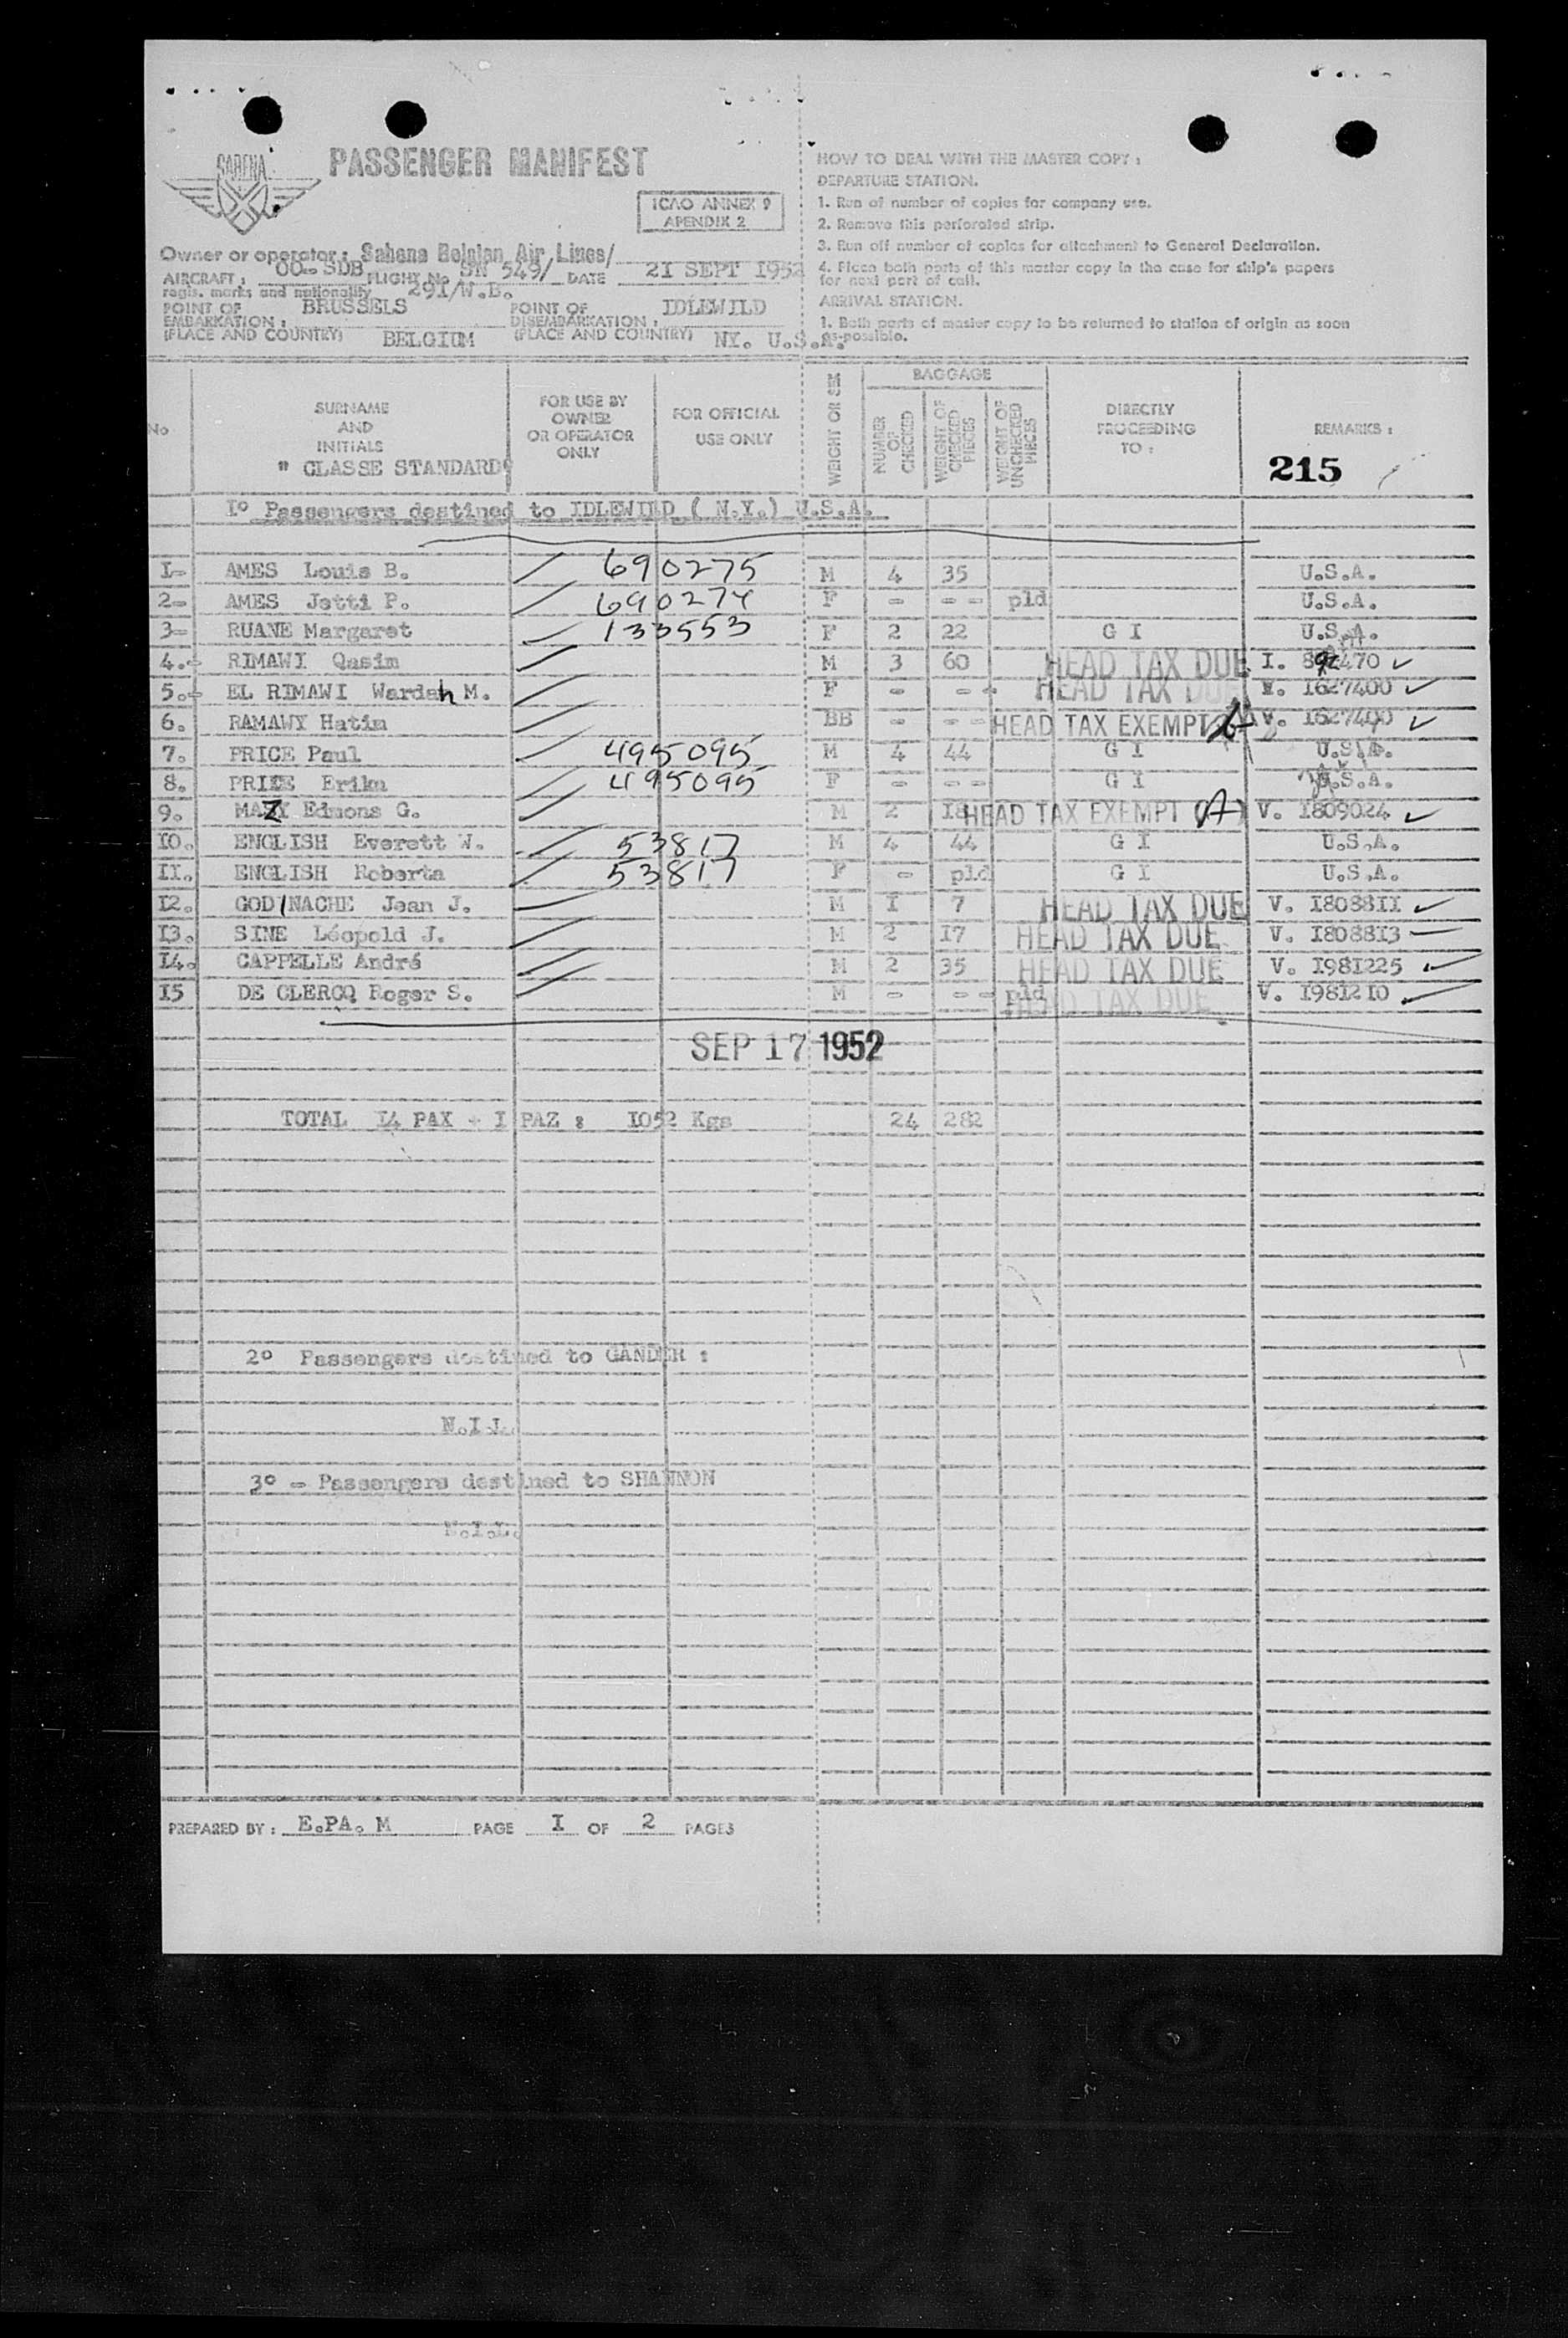 SABENA
PASSENGER MANIFEST
ICAO ANNEX 9
APENDIX 2
Owner or operator : Sabena Belgian Air Lines/
AIRCRAFT : OO- SDB FLIGHT No SN 549/ DATE 21 SEPT 1952
regis. marks and nationality 291/W.B.
POINT OF EMBARKATION : BRUSSELS
(PLACE AND COUNTRY) BELGIUM
POINT OF DISEMBARKATION : IDLEWILD
(PLACE AND COUNTRY) NY. U.S.A.
HOW TO DEAL WITH THE MASTER COPY :
DEPARTURE STATION.
1. Run of number of copies for company use.
2. Remove this perforated strip.
3. Run off number of copies for attachment to General Declaration.
4. Place both parts of this master copy in the case for ship's papers
for next port of call.
ARRIVAL STATION.
1. Both parts of master copy to be returned to station of origin as soon
as possible.
No
SURNAME
AND
INITIALS
" CLASSE STANDARD"
FOR USE BY
OWNER
OR OPERATOR
ONLY
FOR OFFICIAL
USE ONLY
WEIGHT OR SEX
BAGGAGE
NUMBER OF CHECKED
WEIGHT OF CHECKED PIECES
WEIGHT OF UNCHECKED PIECES
DIRECTLY
PROCEEDING
TO :
REMARKS :
215
I° Passengers destined to IDLEWILD ( N.Y.) U.S.A.
I- AMES Louis B. 690275 M 4 35 U.S.A.
2- AMES Jetti P. 690274 F - - - pld U.S.A.
3- RUANE Margaret 133553 F 2 22 G I U.S.A.
4.- RIMAWI Qasim M 3 60 HEAD TAX DUE I. 470
5.- EL RIMAWI Wardah M. F - - - HEAD TAX DUE V. I627400
6. RAMAWY Hatim BB - - - HEAD TAX EXEMPT V. I627400
7. PRICE Paul 495095 M 4 44 G I U.S.A.
8. PRICE Erika 495095 F - - - G I U.S.A.
9. MAZY Edmons G. M 2 I8 HEAD TAX EXEMPT (A) V. I809024
IO. ENGLISH Everett W. 53817 M 4 44 G I U.S.A.
II. ENGLISH Roberta 53817 F - pld G I U.S.A.
I2. GODINACHE Jean J. M I 7 HEAD TAX DUE V. I8088II
I3. SINE Léopold J. M 2 I7 HEAD TAX DUE V. I8088I3
I4. CAPPELLE André M 2 35 HEAD TAX DUE V. I98I225
I5 DE CLERCQ Roger S. M - - - pld HEAD TAX DUE V. I98I2I0
SEP 17 1952
TOTAL I4 PAX + I PAZ : I052 Kgs 24 282
2° Passengers destined to GANDER :
N.I.L.
3° - Passengers destined to SHANNON
N.I.L.
PREPARED BY : E.PA. M PAGE I OF 2 PAGES